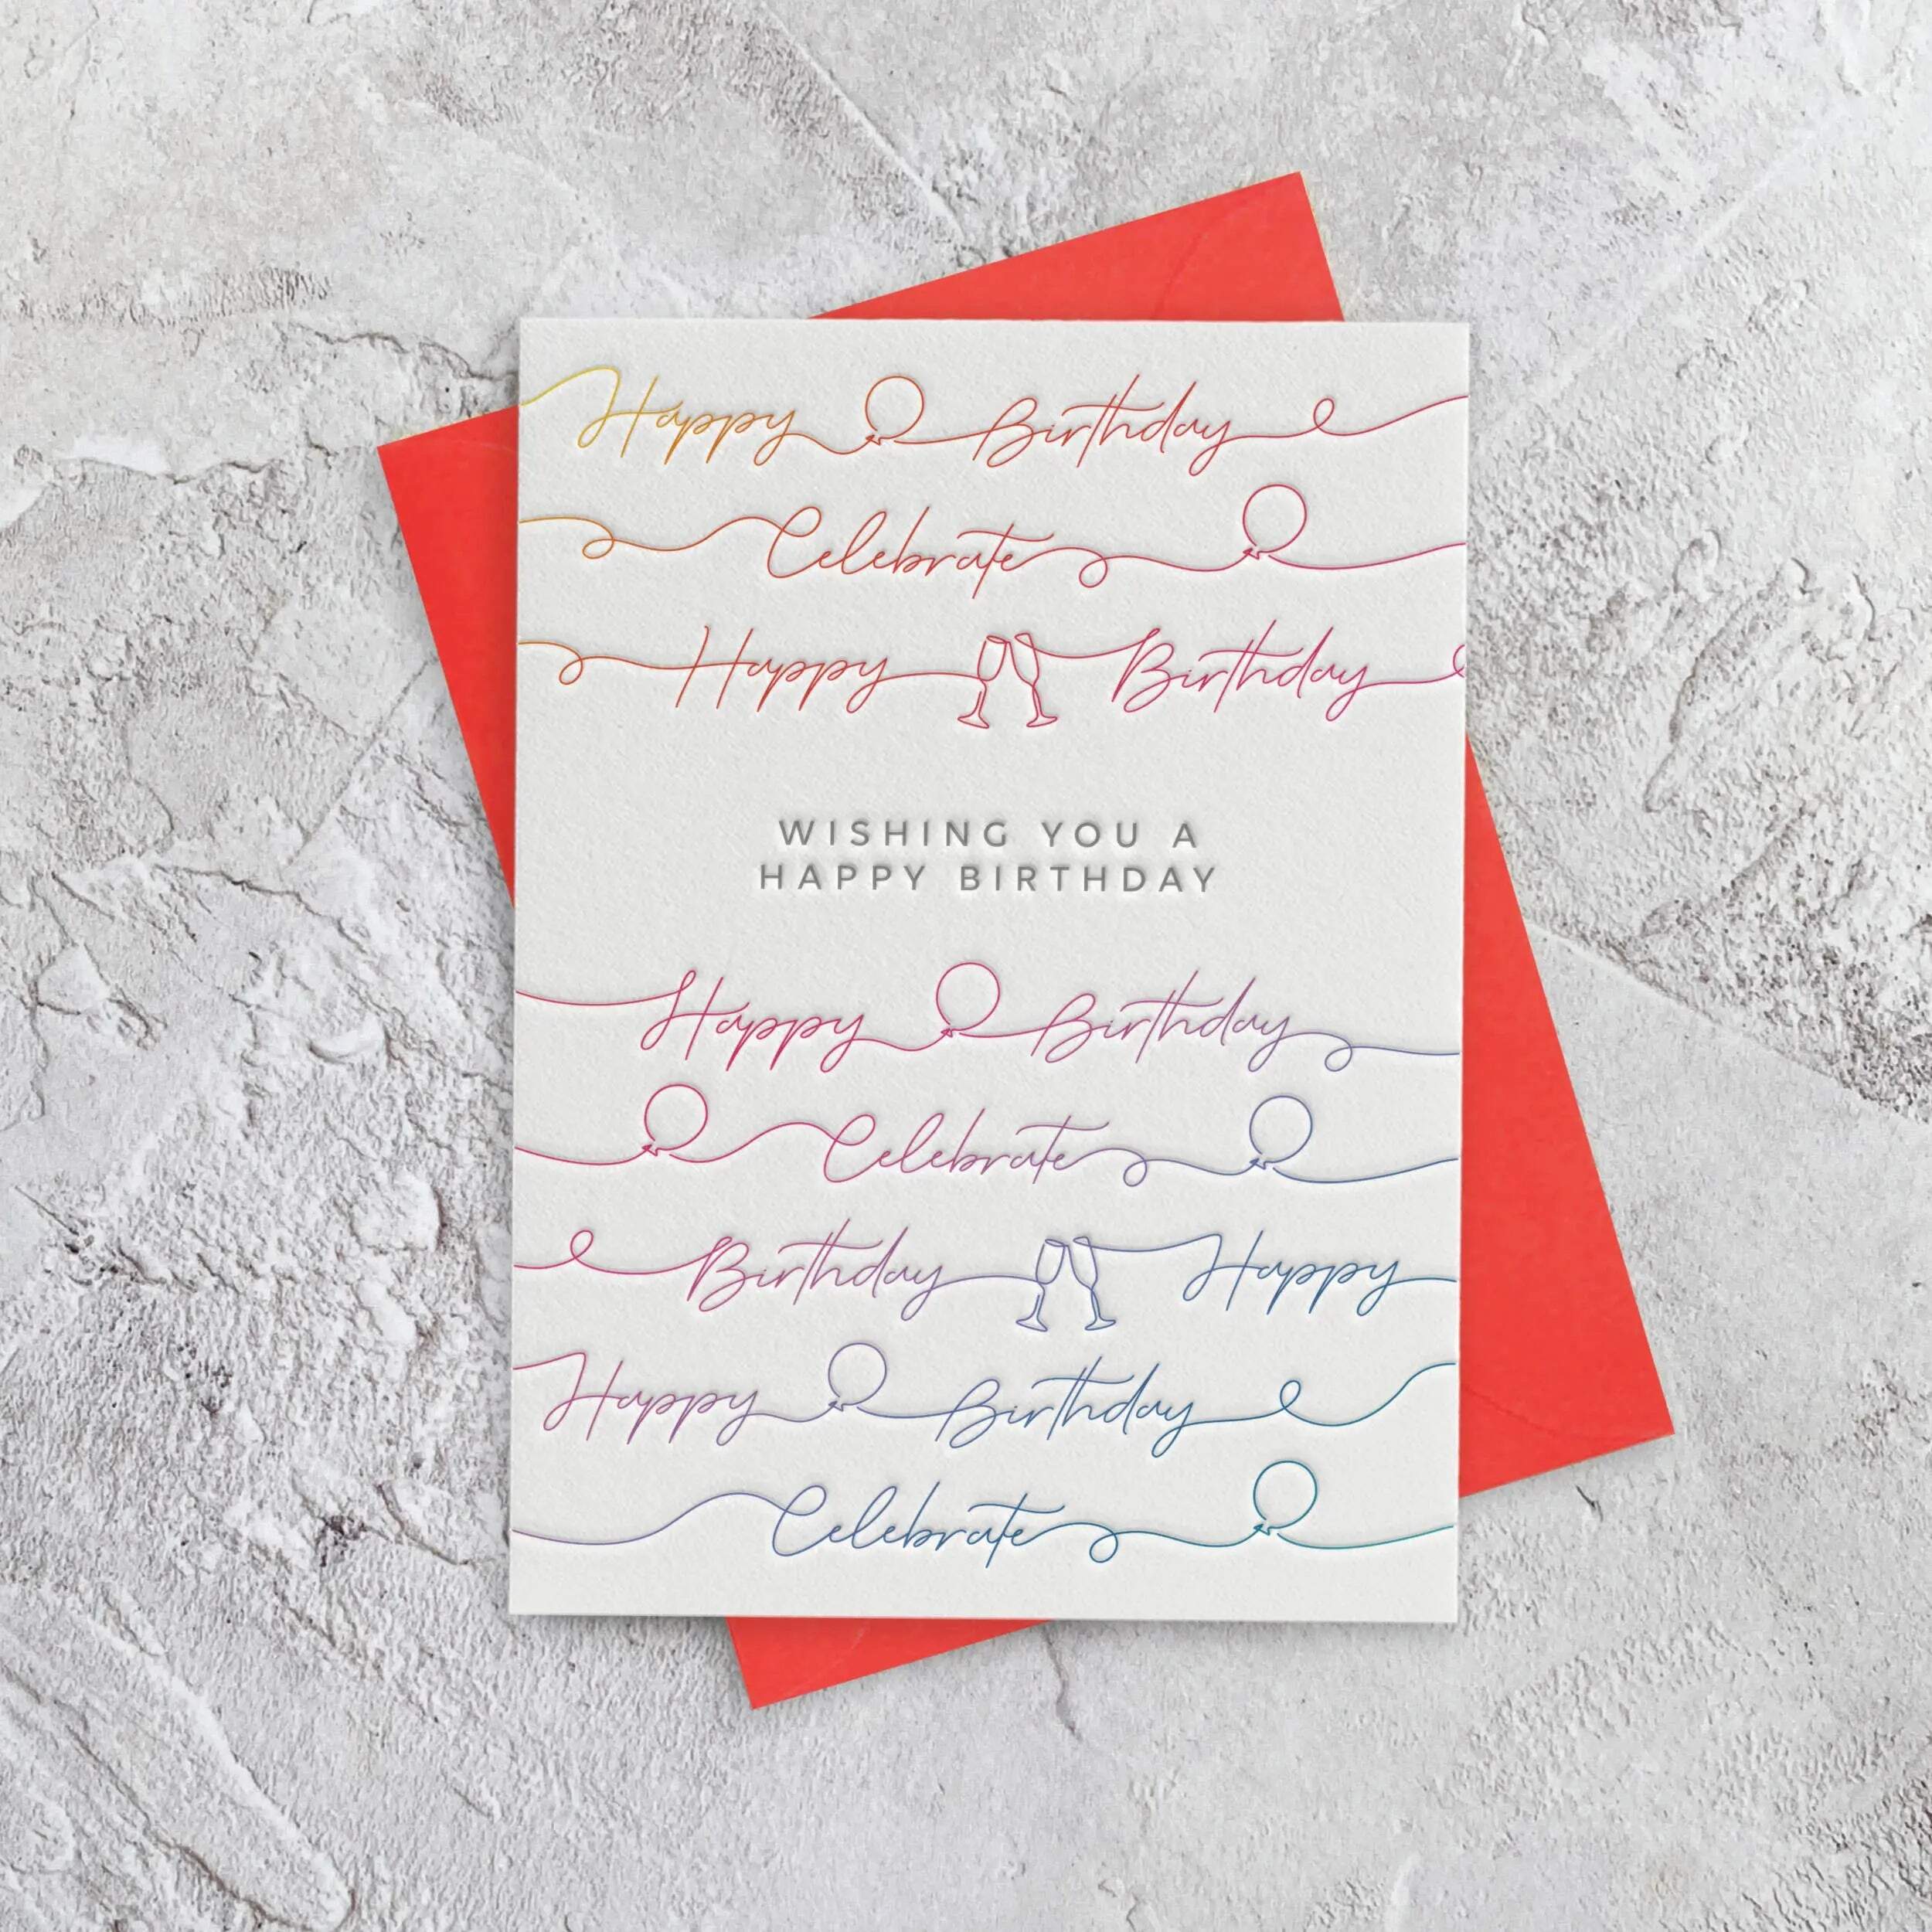 Happy Birthday
Celebrate
Happy Birthday
WISHING YOU A
HAPPY BIRTHDAY
Happy Birthday
Celebrate
Birthday Happy
Happy Birthday
Celebrate